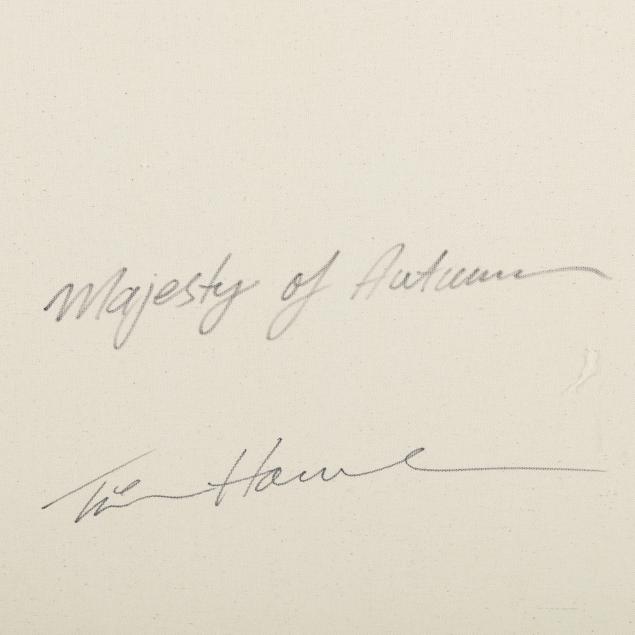 Majesty of Autumn
Tim Howe